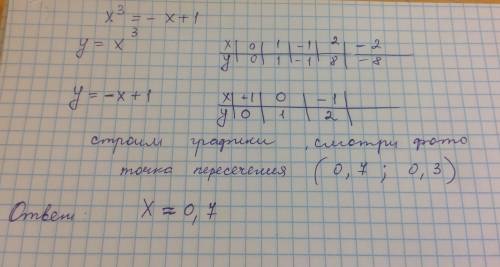 x³ = - x + 1
y = x³
x | 0 | 1 | -1 | 2 | -2
y | 0 | 1 | -1 | 8 | -8
y = -x + 1
x | +1 | 0 | -1 |
y | 0 | 1 | 2 |
строим графики , смотри фото
точка пересечения ( 0,7 ; 0,3 )
Ответ: X ≈ 0,7